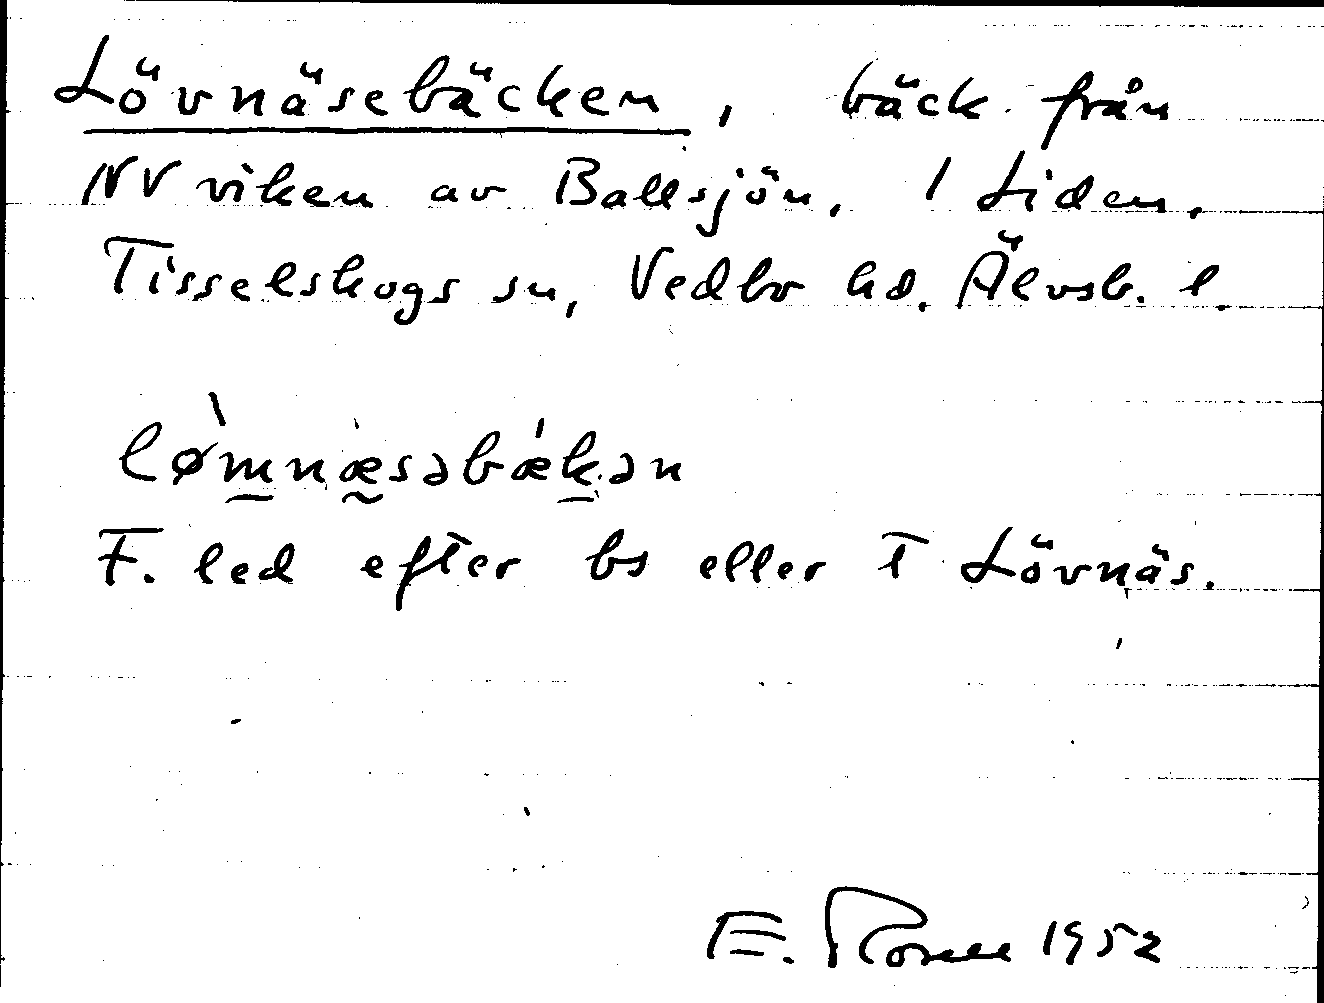 Lövnäsebäcken, bäck från
NV viken av Ballsjön, 1 Liden,
Tisselskogs sn, Vedbo hd. Älvsb. l.
lømnæsəbækən
F. led efter bs eller T Lövnäs.
E. 1952